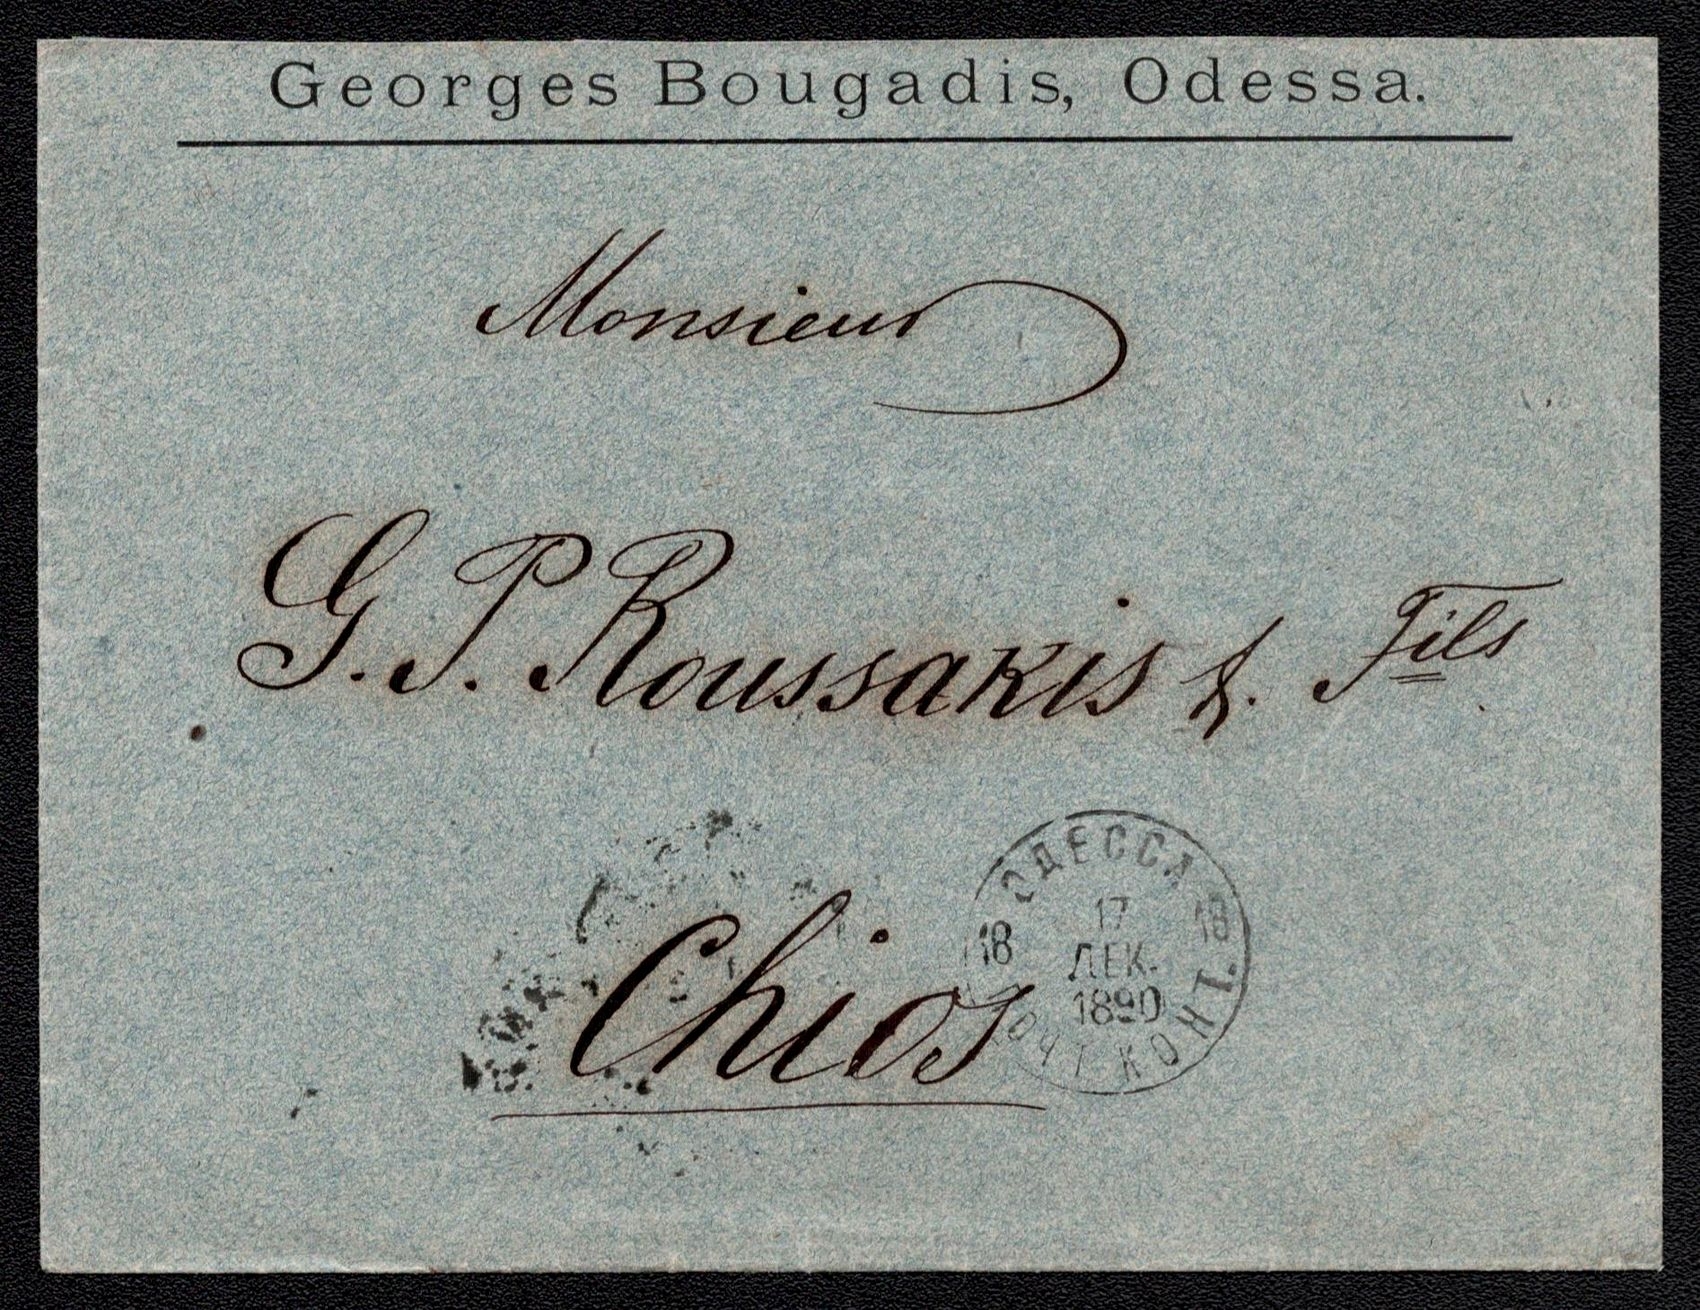 Georges Bougadis, Odessa.
Monsieur
G. P. Roussakis &. Fils
Chios
ОДЕССА
18 18
17
ДЕК.
1890
ПОЧТ. КОНТ.